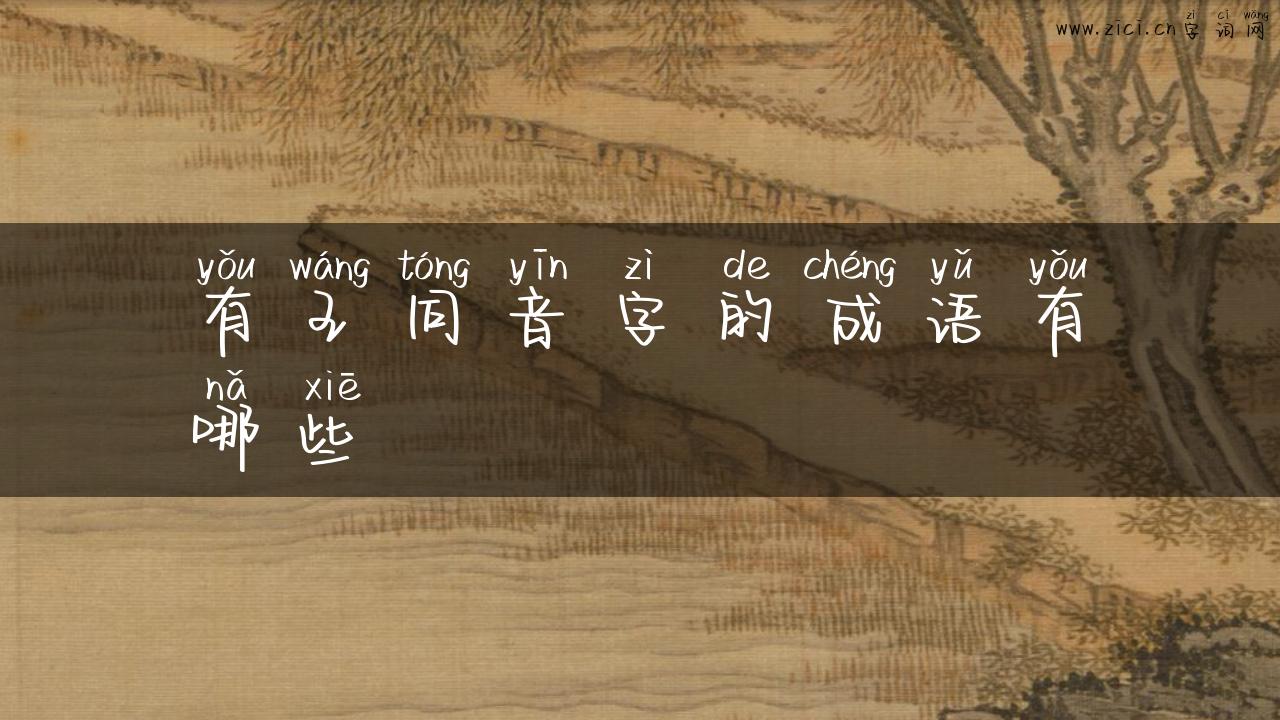 www.zici.cn zì cí wǎng
字 词 网
yǒu wáng tóng yīn zì de chéng yǔ yǒu
有 王 同 音 字 的 成 语 有
nǎ xiē
哪 些